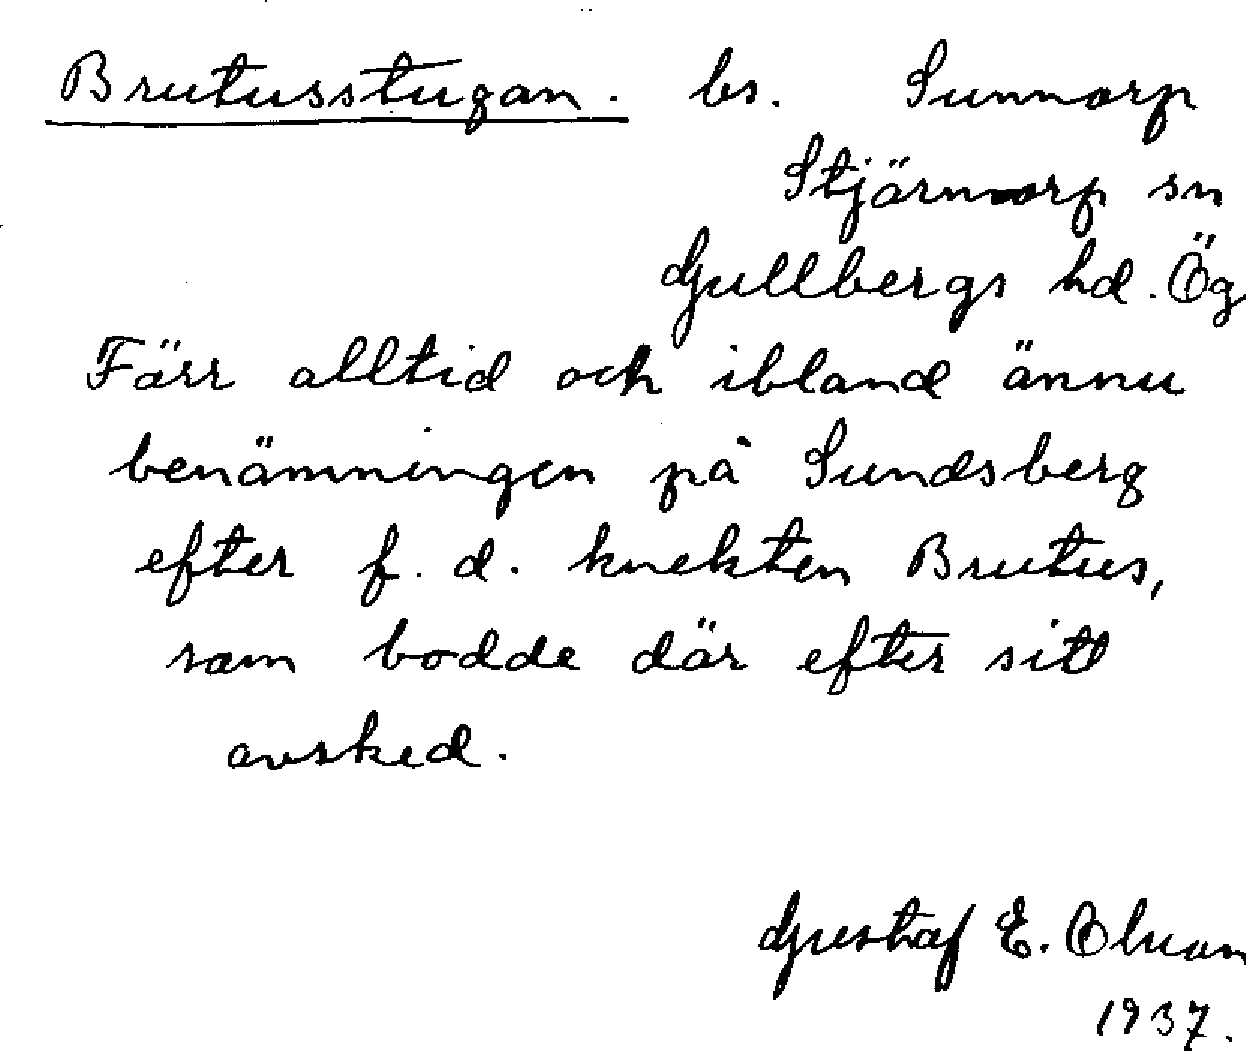 Brutusstugan. bs. Sunnorp
Stjärnorp sn
Gullbergs hd. Ög
Förr alltid och ibland ännu
benämningen på Sundsberg
efter f. d. knekten Brutus,
som bodde där efter sitt
avsked.
Gustaf E. Olsson
1937.